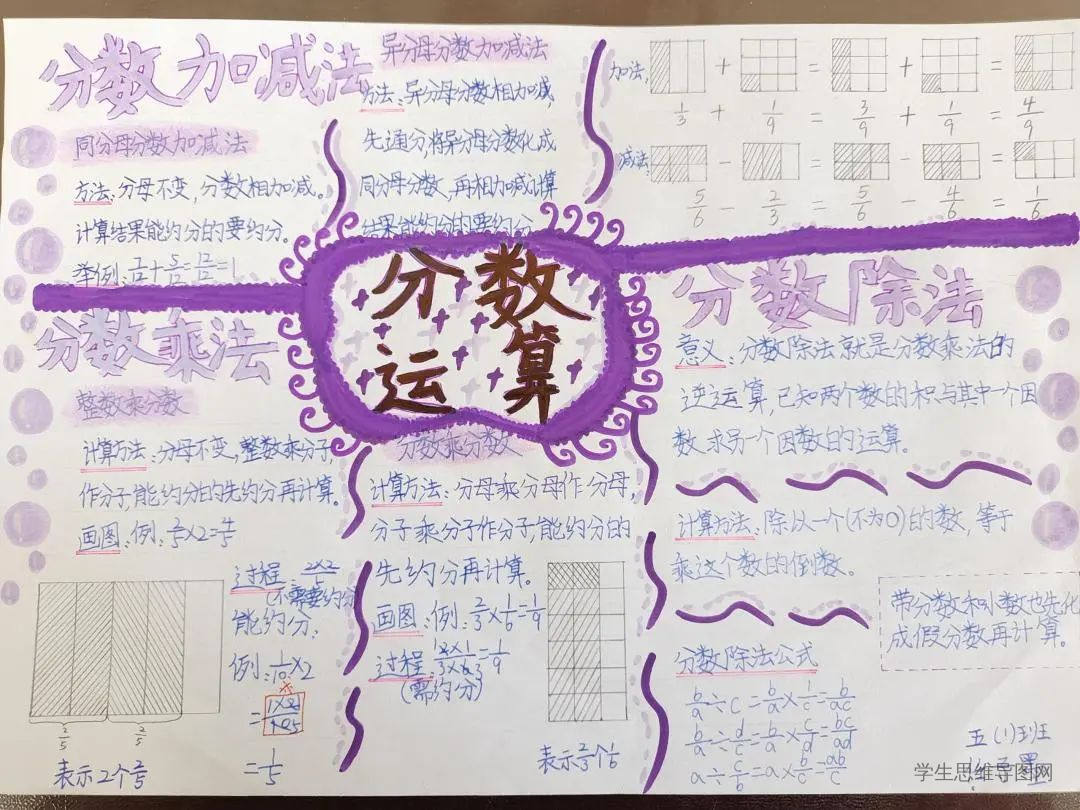 分数加减法
同分母分数加减法
方法:分母不变,分数相加减。
计算结果能约分的要约分。
举例:7/12+5/12=12/12=1
异分母分数加减法
方法:异分母分数相加减,
先通分,将异分母分数化成
同分母分数,再相加减,计算
结果能约分的要约分
加法:
1/3 + 1/9 = 3/9 + 1/9 = 4/9
减法:
5/6 - 2/3 = 5/6 - 4/6 = 1/6
分数
运算
分数乘法
整数乘分数
计算方法:分母不变,整数乘分子,
作分子,能约分的先约分再计算。
画图:例:2/5×2=4/5
2/5
2/5
表示2个2/5
过程:2×2/5
(不需要约分)
能约分:
例:1/10×2
=1/5
分数乘分数
计算方法:分母乘分母作分母,
分子乘分子作分子,能约分的
先约分再计算。
画图:例:2/3×1/6=1/9
过程:
=1/9
(需约分)
表示2/3个1/6
分数除法
意义:分数除法就是分数乘法的
逆运算,已知两个数的积与其中一个因
数,求另一个因数的运算。
计算方法:除以一个(不为0)的数,等于
乘这个数的倒数。
带分数和小数也先化
成假分数再计算。
分数除法公式
b/a÷c=b/a×1/c=b/ac
b/a÷d/c=b/a×c/d=bc/ad
a÷c/b=a×b/c=ab/c
五(1)班
学生思维导图网